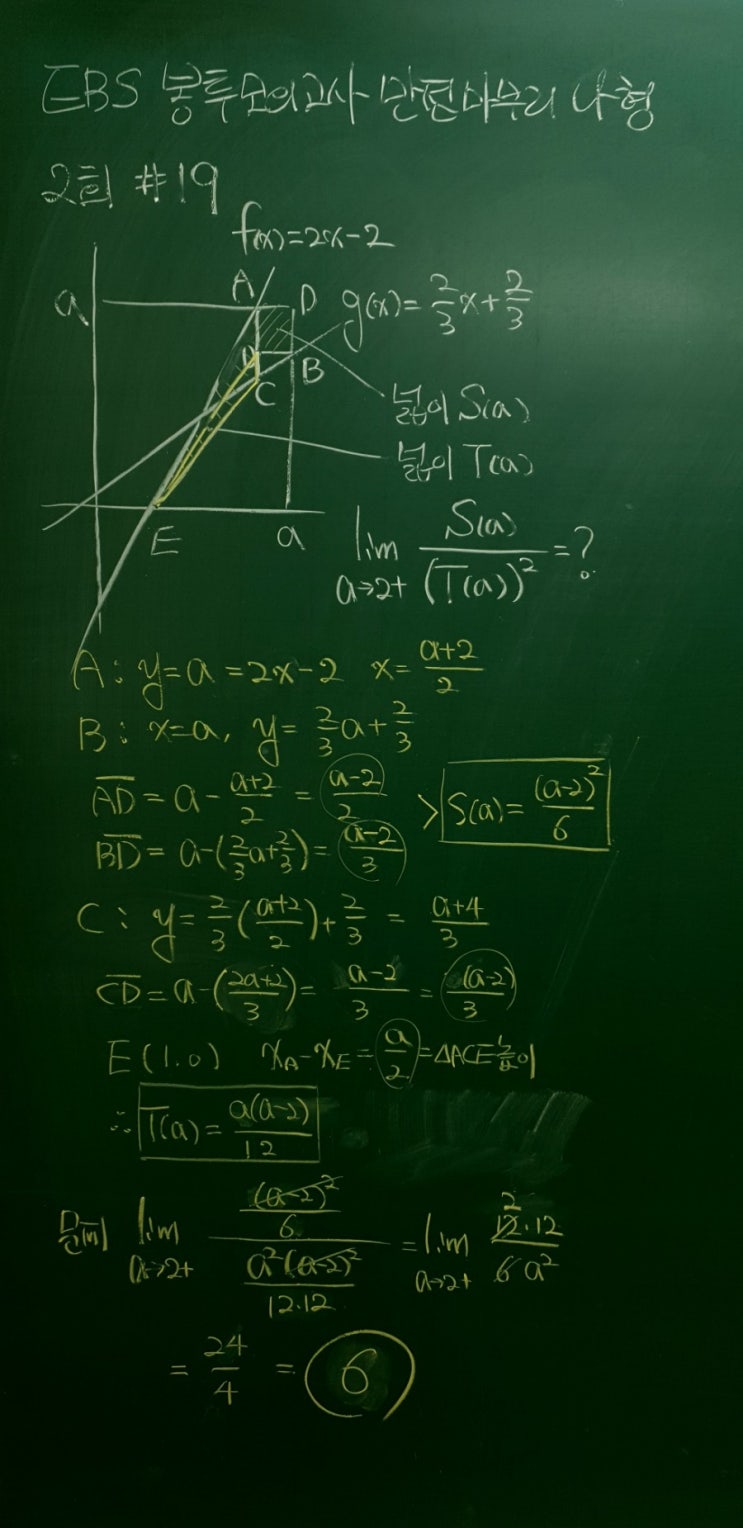 EBS 봉투모의고사 만점마무리 나형
2회 #19
f(x)=2x-2
a
A
D
g(x)=2/3x+2/3
D
B
C
넓이 S(a)
넓이 T(a)
E
a
lim a→2+ S(a)/(T(a))² =?
A: y=a=2x-2 x=(a+2)/2
B: x=a, y=2/3a+2/3
AD = a-(a+2)/2 = (a-2)/2
> S(a)=(a-2)²/6
BD = a-(2/3a+2/3)=(a-2)/3
C: y=2/3((a+2)/2)+2/3 = (a+4)/3
CD=a-((2a+2)/3)=(a-2)/3=(a-2)/3
E(1.0) x_A-x_E=a/2=△ACE높이
∴ T(a)=a(a-2)/12
문제 lim a→2+ ((a-2)²/6)/(a²(a-2)²/12·12) = lim a→2+ 12·12/6a²
2
= 24/4 = 6